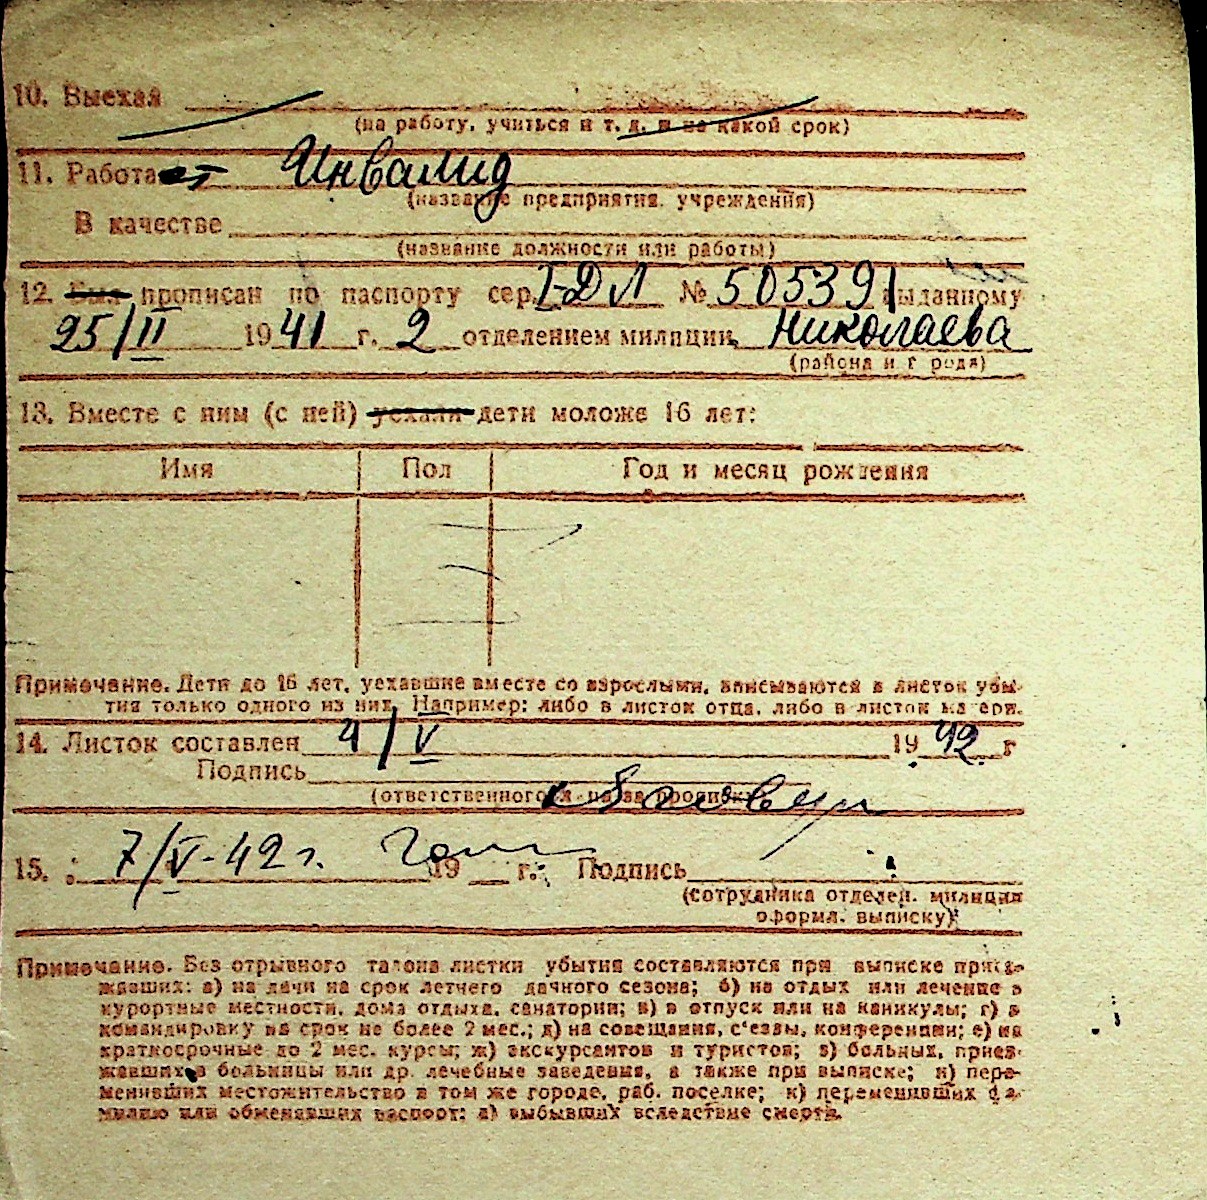 10. Выехал
(на работу, учиться и т. д. и на какой срок)
11. Работает Инвалид
(название предприятия, учреждения)
В качестве
(название должности или работы)
12. Был прописан по паспорту сер. I-ДЛ № 505391 выданному
25/II 1941 г. 2 отделением милиции, Николаева
(района и города)
13. Вместе с ним (с ней) уехали дети моложе 16 лет:
Имя Пол Год и месяц рождения
Примечание. Дети до 16 лет, уехавшие вместе со взрослыми, вписываются в листок убы-
тия только одного из них. Например: либо в листок отца, либо в листок матери.
14. Листок составлен 4/V 1942 г
Подпись
(ответственного за прописку)
15. 7/V-42 г. 19 г. Подпись
(сотрудника отделен. милиции
оформл. выписку)
Примечание. Без отрывного талона листки убытия составляются при выписке приез-
жавших: а) на дачи на срок летнего дачного сезона; б) на отдых или лечение в
курортные местности, дома отдыха, санатории; в) в отпуск или на каникулы; г) в
командировку на срок не более 2 мес.; д) на совещания, с'езды, конференции; е) на
краткосрочные до 2 мес. курсы; ж) экскурсантов и туристов; з) больных, приез-
жавших в больницы или др. лечебные заведения, а также при выписке; и) пере-
менивших местожительство в том же городе, раб. поселке; к) переменивших фа-
милию или обменявших паспорт; л) выбывших вследствие смерти.